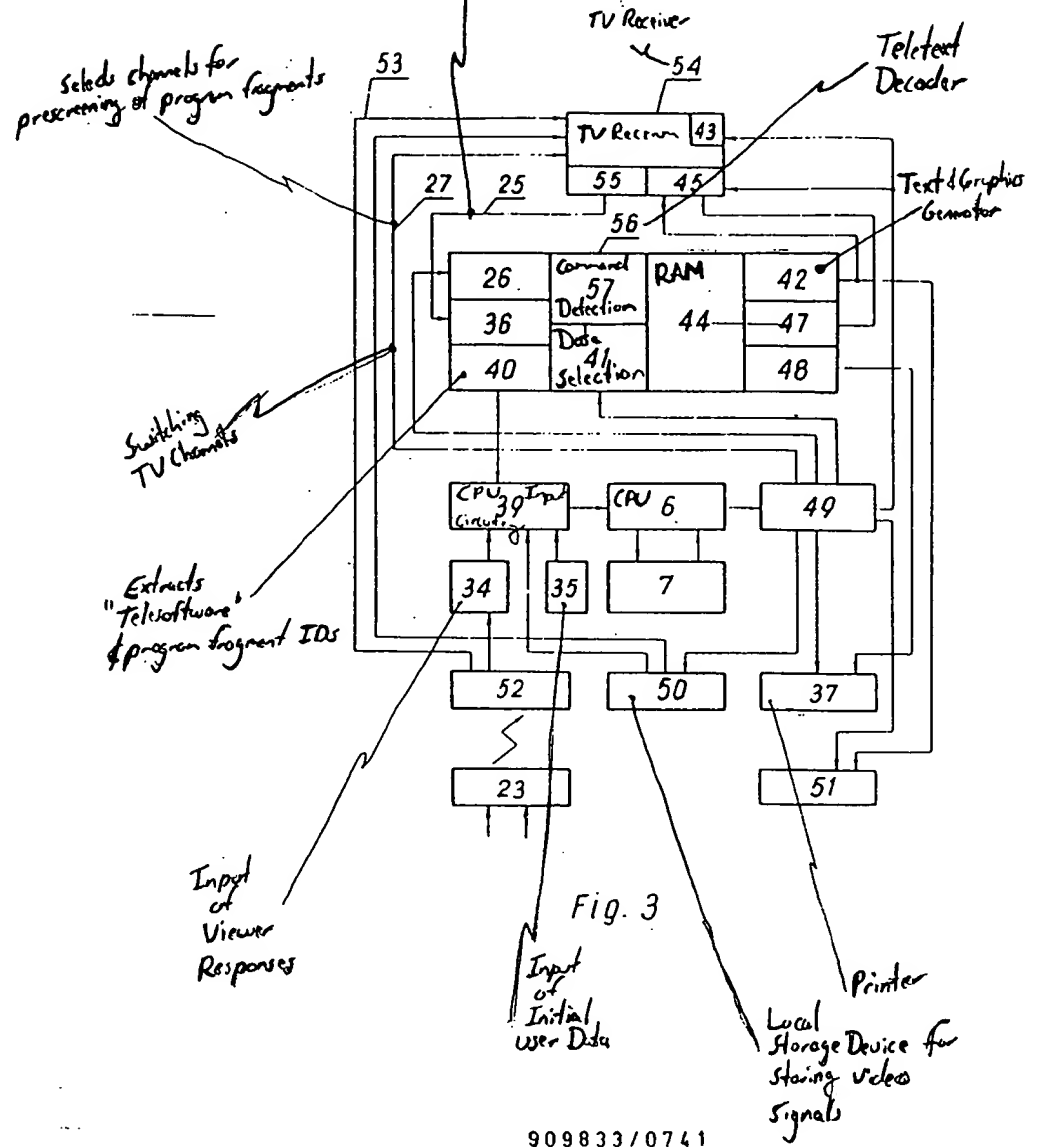 TV Receiver
54
53
Selects channels for
prescreening of program fragments
Teletext
Decoder
TV Receiver
43
55
45
27
25
56
Text & Graphics
Generator
26
Command
57
Detection
RAM
42
36
44
47
40
Data
41
Selection
48
Switching
TV Channels
CPU Input
39
Circuitry
CPU 6
49
34
35
7
Extracts
"Telesoftware"
& program fragment IDs
52
50
37
23
51
Input
of
Viewer
Responses
Fig. 3
Input
of
Initial
User Data
Printer
Local
Storage Device for
Storing video
Signals
909833/0741